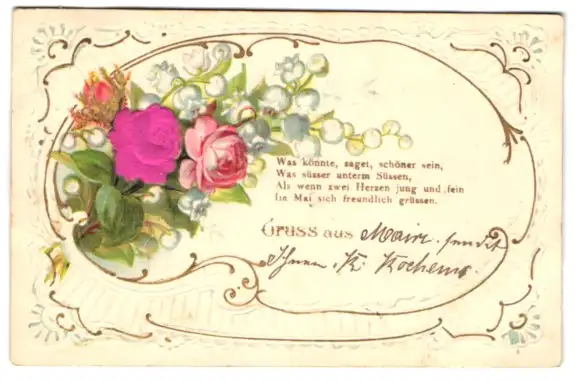 Was könnte, saget, schöner sein,
Was süsser unterm Süssen,
Als wenn zwei Herzen jung und fein
Im Mai sich freundlich grüssen.
Gruss aus Mainz sendet
Ihnen K. Kochems.